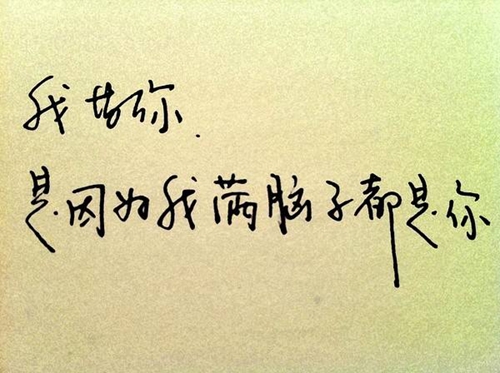 我装你
是因为我满脑子都是你